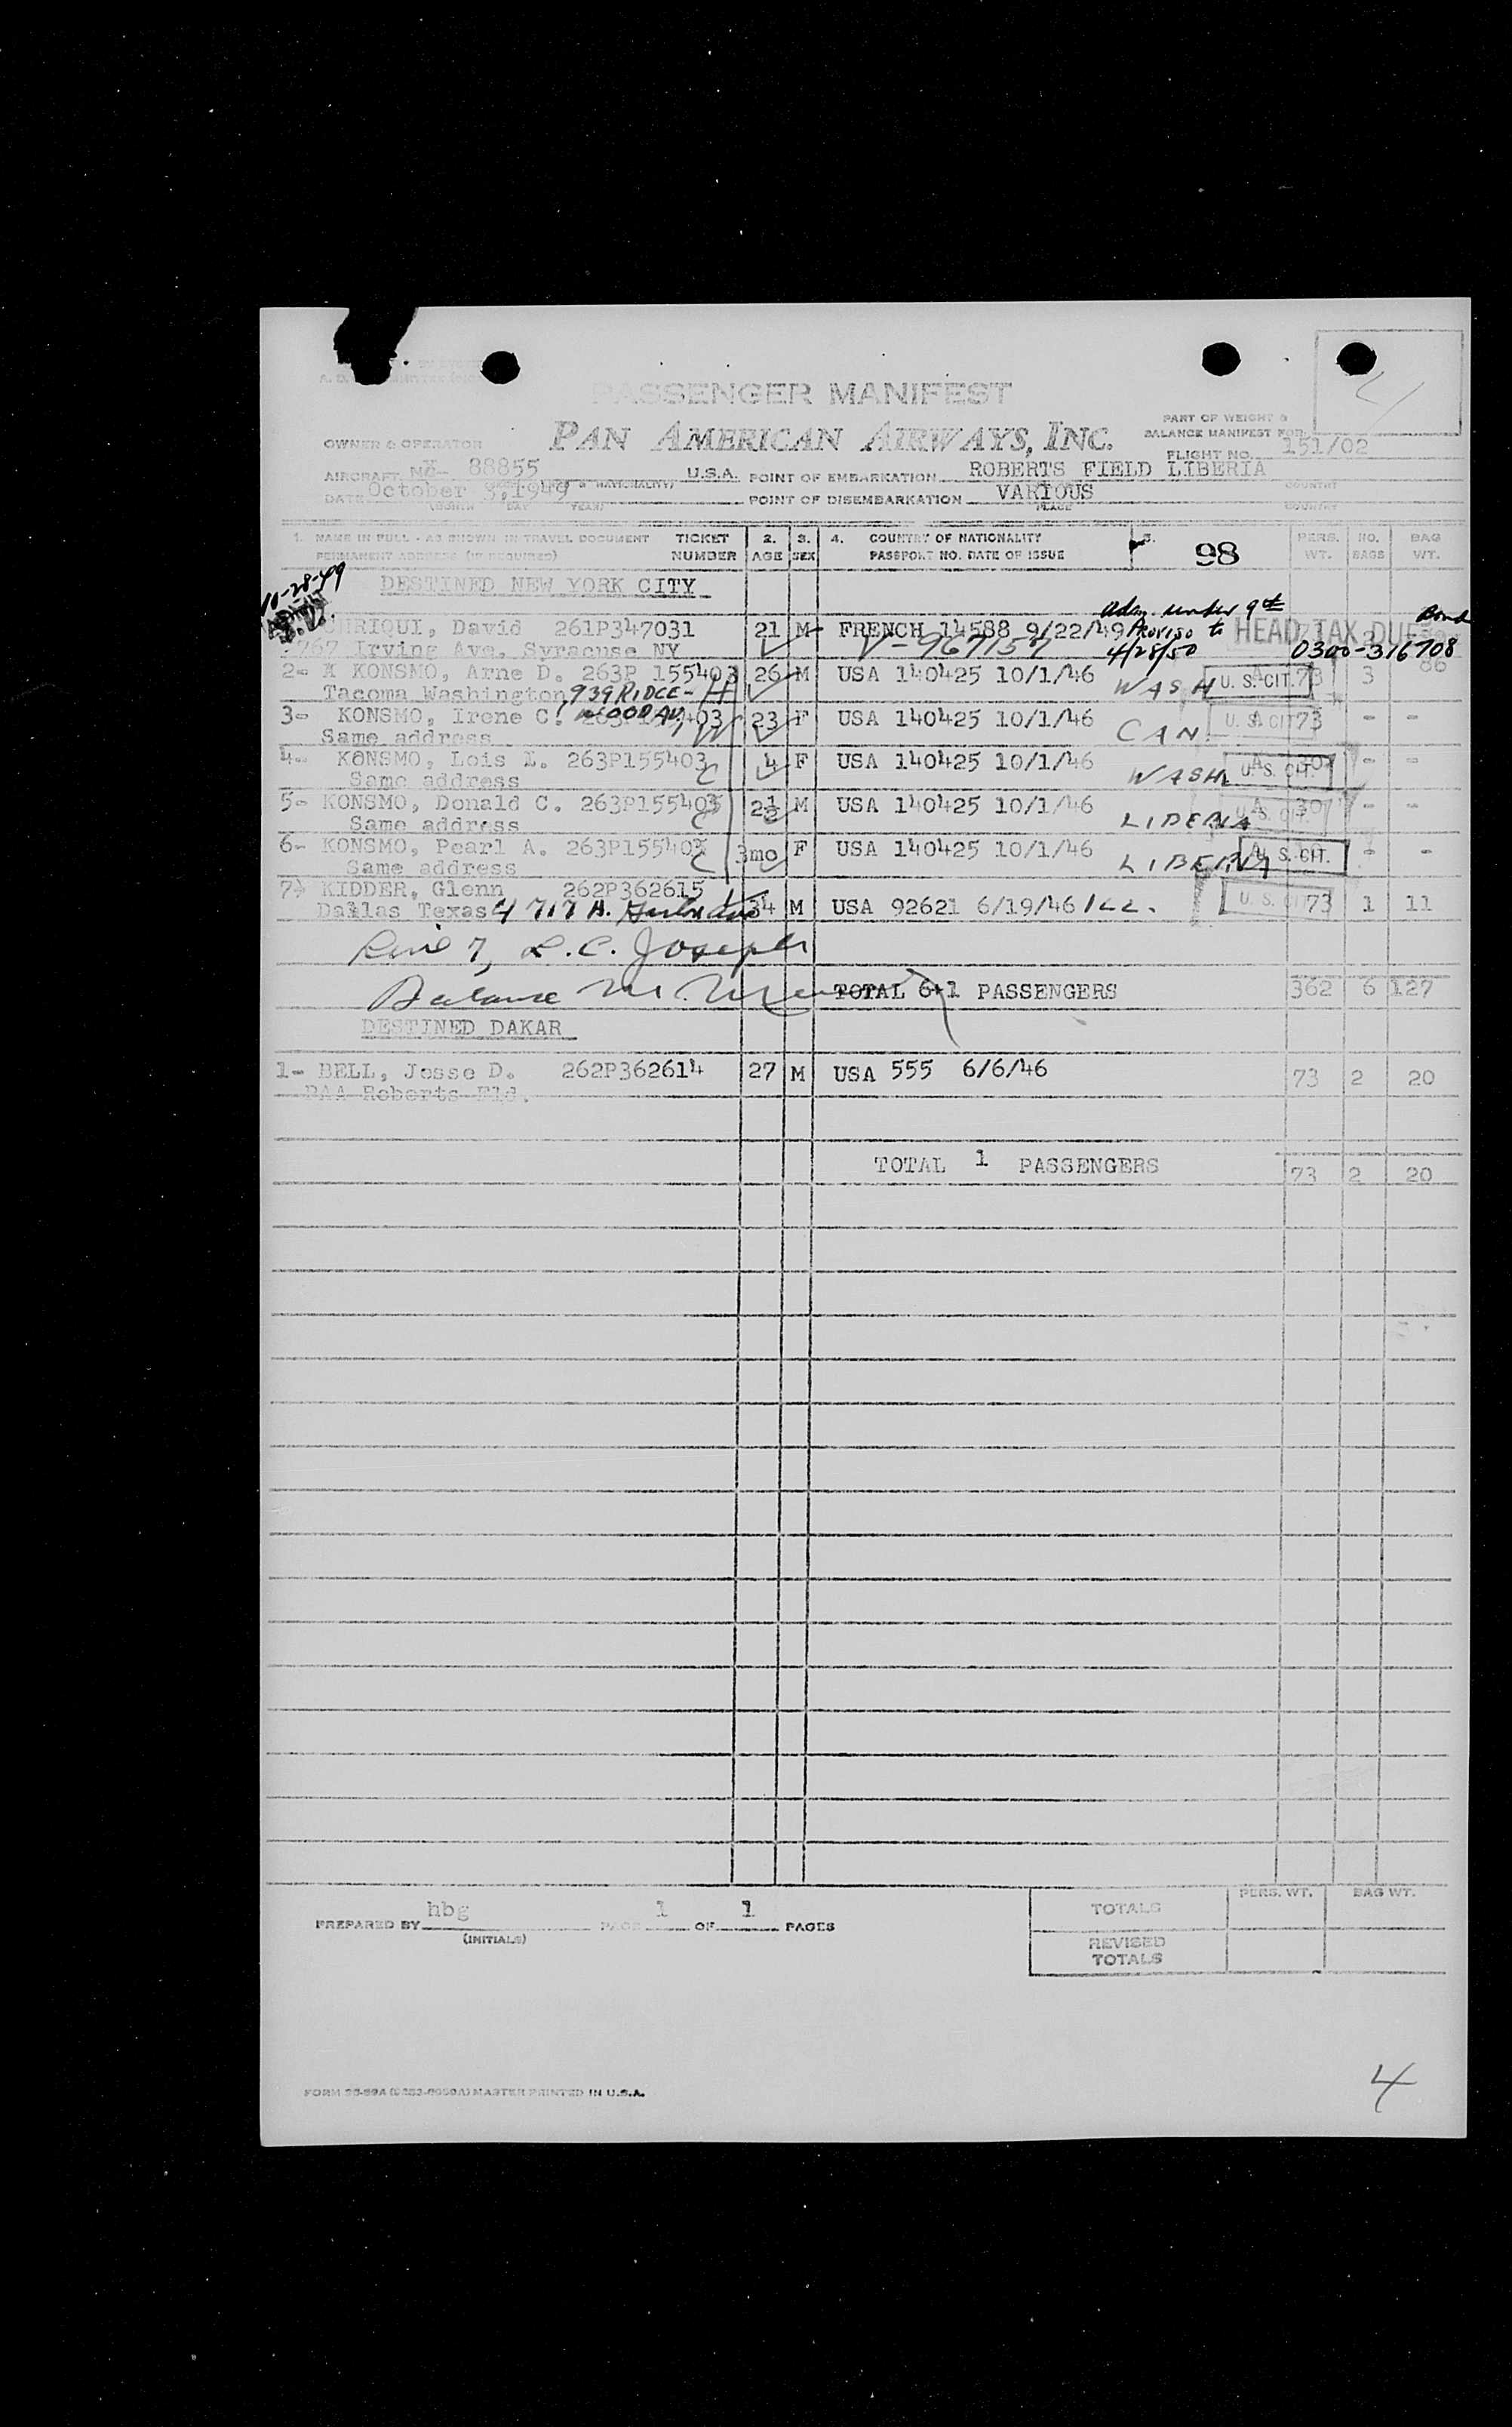 PASSENGER MANIFEST
PAN AMERICAN AIRWAYS, INC.
PART OF WEIGHT &
BALANCE MANIFEST FOR
4
OWNER & OPERATOR
FLIGHT NO. 151/02
AIRCRAFT NC- 88855 U.S.A. POINT OF EMBARKATION ROBERTS FIELD LIBERIA COUNTRY
DATE October 3, 1949 & NATIONALITY) POINT OF DISEMBARKATION VARIOUS COUNTRY
(MONTH DAY YEAR) PLACE
1. NAME IN FULL - AS SHOWN IN TRAVEL DOCUMENT TICKET 2. 3. 4. COUNTRY OF NATIONALITY 5. PERS. NO. BAG
PERMANENT ADDRESS (IF REQUIRED) NUMBER AGE SEX PASSPORT NO. DATE OF ISSUE 98 WT. BAGS WT.
10-28-49 DESTINED NEW YORK CITY
Adm. under 9th Bond
OHRIQUI, David 261P347031 21 M FRENCH 14588 9/22/49 Proviso to HEAD TAX DUE
767 Irving Ave. Syracuse NY V-967157 4/28/50 0300-316708
2- KONSMO, Arne D. 263P 155403 26 M USA 140425 10/1/46 WASH U. S. CIT. 73 3 86
Tacoma Washington, 939 RIDGE-
3- KONSMO, Irene C. WOOD AV 263P155403 23 F USA 140425 10/1/46 CAN U. S. CIT 73 - -
Same address W
4- KONSMO, Lois L. 263P155403 4 F USA 140425 10/1/46 WASH U. S. CIT. - -
Same address C
5- KONSMO, Donald C. 263P155403 2½ M USA 140425 10/1/46 LIBERIA U. S. CIT. - -
Same address C
6- KONSMO, Pearl A. 263P155403 3mo F USA 140425 10/1/46 LIBERIA U. S. CIT. - -
Same address C
7- KIDDER, Glenn 262P362615
Dallas Texas 34 M USA 92621 6/19/46 ILL. U. S. CIT 73 1 11
Line 7, L.C. Joseph
Balance M. TOTAL 6+1 PASSENGERS 362 6 127
DESTINED DAKAR
1- BELL, Jesse D. 262P362614 27 M USA 555 6/6/46 73 2 20
PAA Roberts Fld.
TOTAL 1 PASSENGERS 73 2 20
PREPARED BY hbg PAGE 1 OF 1 PAGES
(INITIALS)
PERS. WT. BAG WT.
TOTALS
REVISED
TOTALS
4
MASTER PRINTED IN U.S.A.